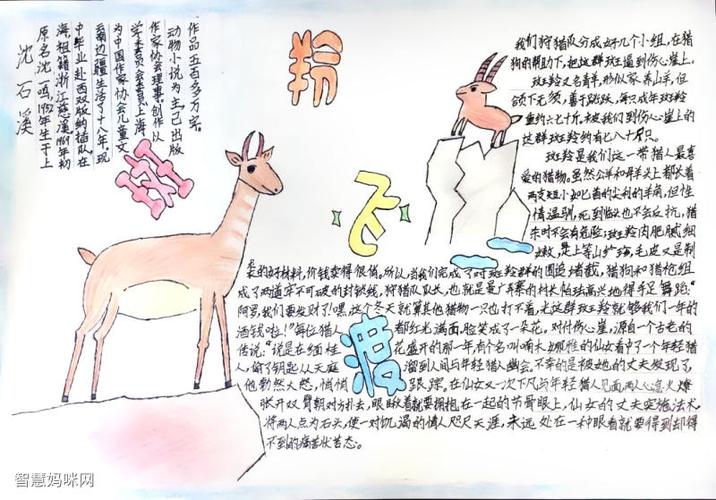 沈石溪
原名沈一鸣,1952年生于上
海祖籍浙江慈溪1969年初
中毕业赴西双版纳插队在
云南边疆生活了十八年,现
为中国作家协会儿童文
学委员会委员上海
作家协会理事。创作以
动物小说为主已出版
作品五百多万字。
斑
羚
飞
渡
我们狩猎队分成好几个小组,在猎
狗的帮助下,把这群斑逼到伤心崖上。
斑羚又名青羊,形似家养山羊,但
颌下无须,善于跳跃,每只成年斑羚
重约六七十斤,被我们逼到伤心崖上的
这群斑羚约有七八十只。
斑羚是我们这一带猎人最喜
爱的猎物。虽然公羊和母羊头上都长着
两支短小如匕首的尖利的羊角,但性
情温驯,死到临头也不会反抗,猎
杀时不会有危险,斑羚肉肥腻细
嫩,是上等山珍,毛皮又是制
裘的好材料,价钱卖得很俏。所以,当我们完成了对斑羚群的围追堵截,猎狗和猎枪组
成了两道牢不可破的封锁线,狩猎队队长,也就是曼广弄寨的村长帕珐高兴地得手足舞蹈:“
阿罗,我们要发财了!嘿,这个冬天就算其他猎物一只也打不着,光这群斑羚就够我们一年的
酒钱啦!”每位猎人都红光满面,脸笑成了一朵花,对付伤心崖,源自一个古老的
传说:“说是在缅桂花盛开的那一年,有个名叫喃木娜雅的仙女看中了一个年轻猎
人,偷了钥匙从天庭溜到人间与年轻猎人幽会,不幸的是被她的丈夫发现了,
他勃然大怒,悄悄跟踪,在仙女又一次下凡与年轻猎人见面两人心急火燎
张开双臂朝对方扑去,眼瞅着就要拥抱在一起的节骨眼上,仙女的丈夫突施法术,
将两人点为石头,使一对饥渴的情人咫尺天涯,永远处在一种眼看就要得到却得
不到的痛苦状态。
智慧妈咪网